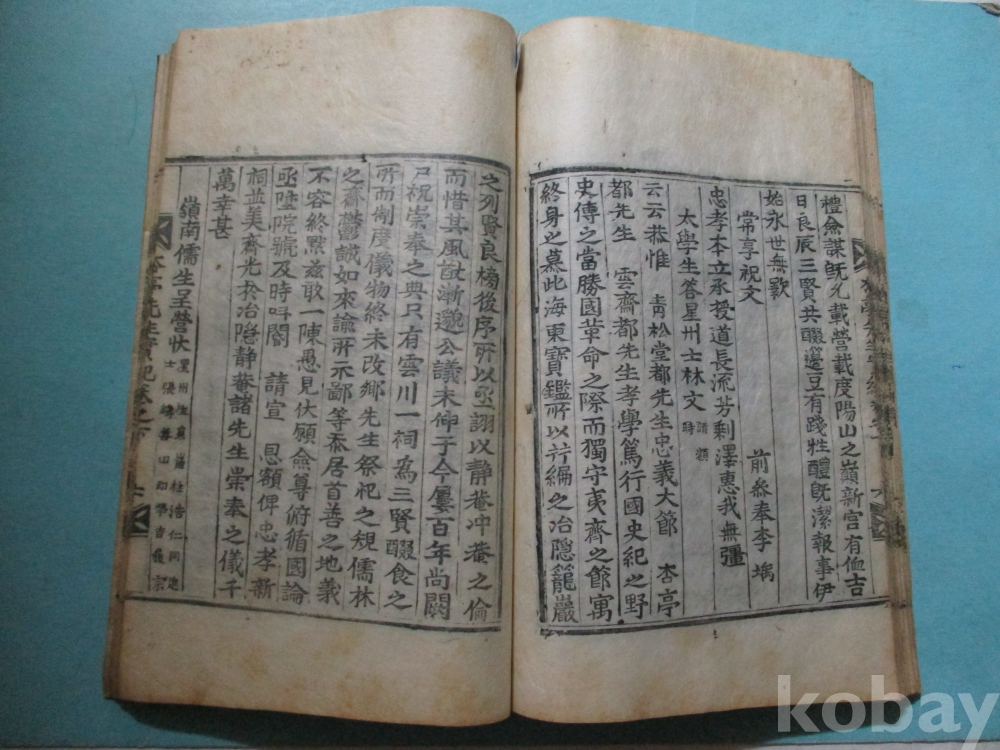 禮僉謀旣允載營載度陽山之巓新宮有侐吉
日良辰三賢共醊籩豆有踐牲醴旣潔報事伊
始永世無斁
常享祝文 前參奉李㙖
忠孝本立承授道長流芳剩澤惠我無疆
太學生答星州士林文
云云恭惟 靑松堂都先生忠義大節 杏亭
都先生 雲齋都先生孝學篤行國史紀之野
史傳之當勝國革命之際而獨守夷齊之節寓
終身之慕此海東寶鑑所以幷編之冶隱籠巖
之列賢良榜後序所以亟詡以靜菴冲菴之倫
而惜其風猷漸邈公議未伸于今屢百年尙闕
尸祝崇奉之典只有雲川一祠爲三賢醊食之
所而制度儀物終未改鄕先生祭祀之規儒林
之齋鬱誠如來諭所示鄙等忝居首善之地義
不容終默玆敢一陳愚見伏願僉尊俯循國論
亟陞院號及時呌閽 請宣 恩額俾忠孝新
祠並美齊光於冶隱靜菴諸先生崇奉之儀千
萬幸甚
嶺南儒生呈營狀
杏亭先生實紀卷之下
kobay